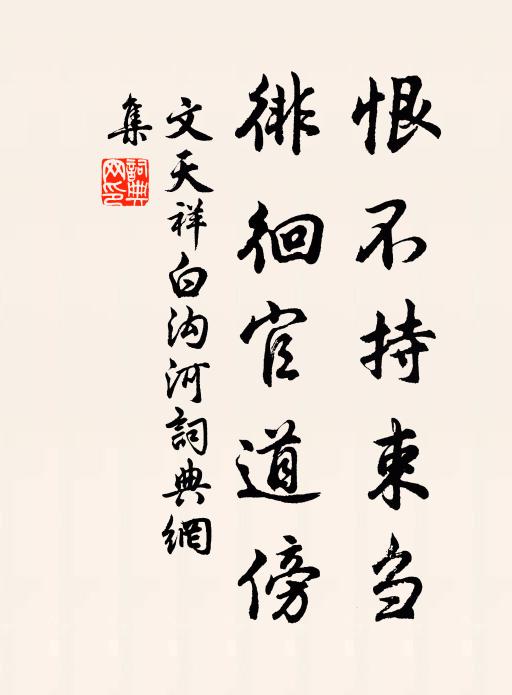 恨不持束刍
徘徊官道傍
文天祥白沟河詞典網
集
詞典網印